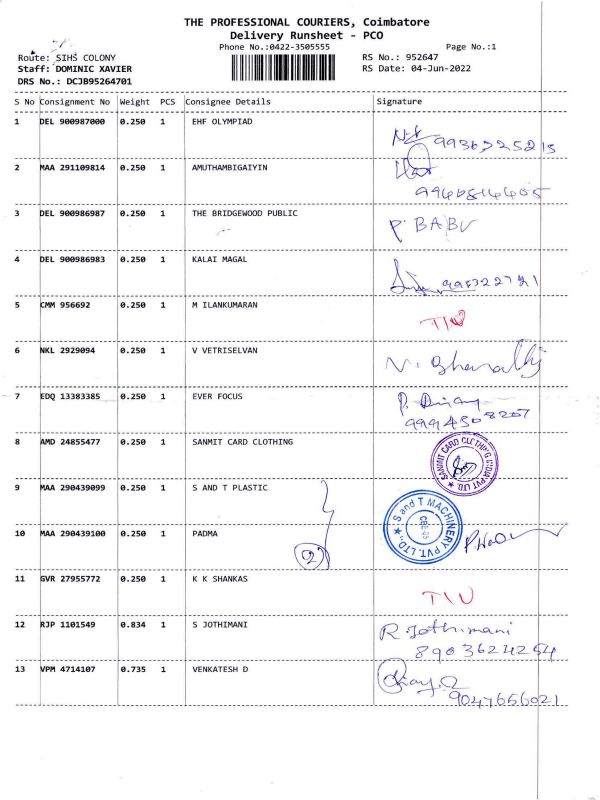 THE PROFESSIONAL COURIERS, Coimbatore
Delivery Runsheet - PCO
Phone No.:0422-3505555 Page No.:1
Route: SIHS COLONY RS No.: 952647
Staff: DOMINIC XAVIER RS Date: 04-Jun-2022
DRS No.: DCJB95264701
S No Consignment No Weight PCS Consignee Details Signature
1 DEL 900987000 0.250 1 EHF OLYMPIAD
2 MAA 291109814 0.250 1 AMUTHAMBIGAIYIN
3 DEL 900986987 0.250 1 THE BRIDGEWOOD PUBLIC P. BABU
4 DEL 900986983 0.250 1 KALAI MAGAL
5 CMM 956692 0.250 1 M ILANKUMARAN
6 NKL 2929094 0.250 1 V VETRISELVAN
7 EDQ 13383385 0.250 1 EVER FOCUS
9994508207
8 AMD 24855477 0.250 1 SANMIT CARD CLOTHING SANMIT CARD CLOTHING INDIA PVT LTD.
9 MAA 290439099 0.250 1 S AND T PLASTIC
S and T MACHINERY PVT. LTD.,
10 MAA 290439100 0.250 1 PADMA
2
11 GVR 27955772 0.250 1 K K SHANKAS
12 RJP 1101549 0.834 1 S JOTHIMANI R. Jothimani
8903624254
13 VPM 4714107 0.735 1 VENKATESH D
9047656021